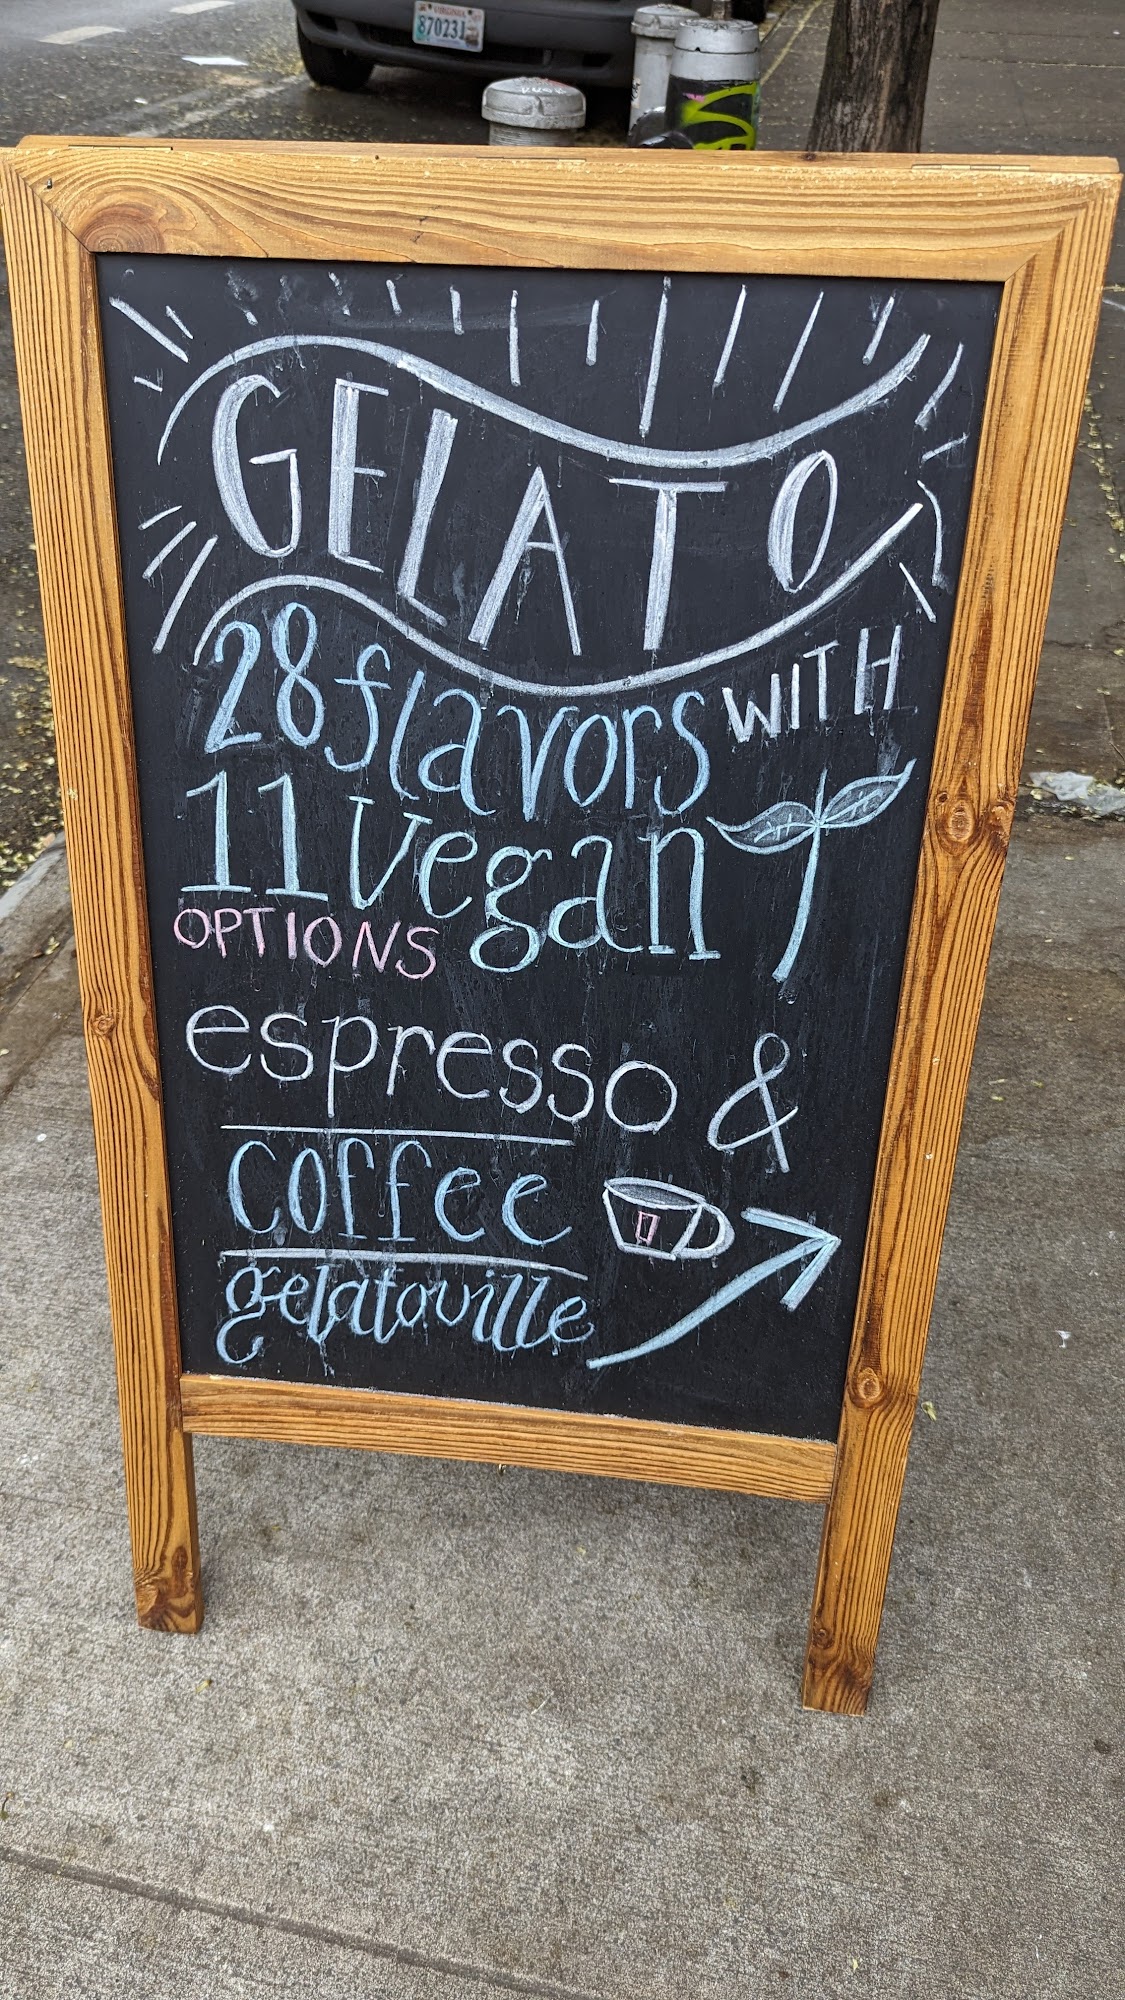 VIRGINIA
870231
GELATO
28 flavors WITH
11 Vegan
OPTIONS
espresso &
coffee
gelatoville